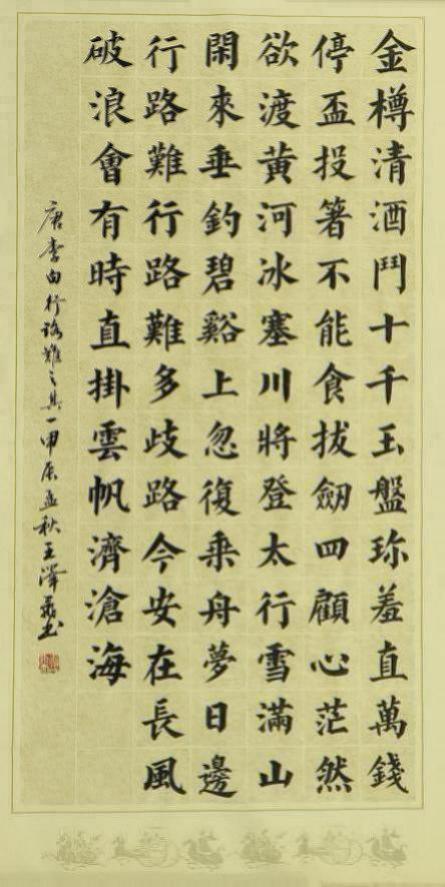 金樽清酒鬥十千玉盤珎羞直萬錢
停盃投箸不能食拔劒四顧心茫然
欲渡黃河冰塞川將登太行雪滿山
閑來垂釣碧谿上忽復乘舟夢日邊
行路難行路難多歧路今安在長風
破浪會有時直掛雲帆濟滄海
唐李白行路難之其一甲辰孟秋王澤書